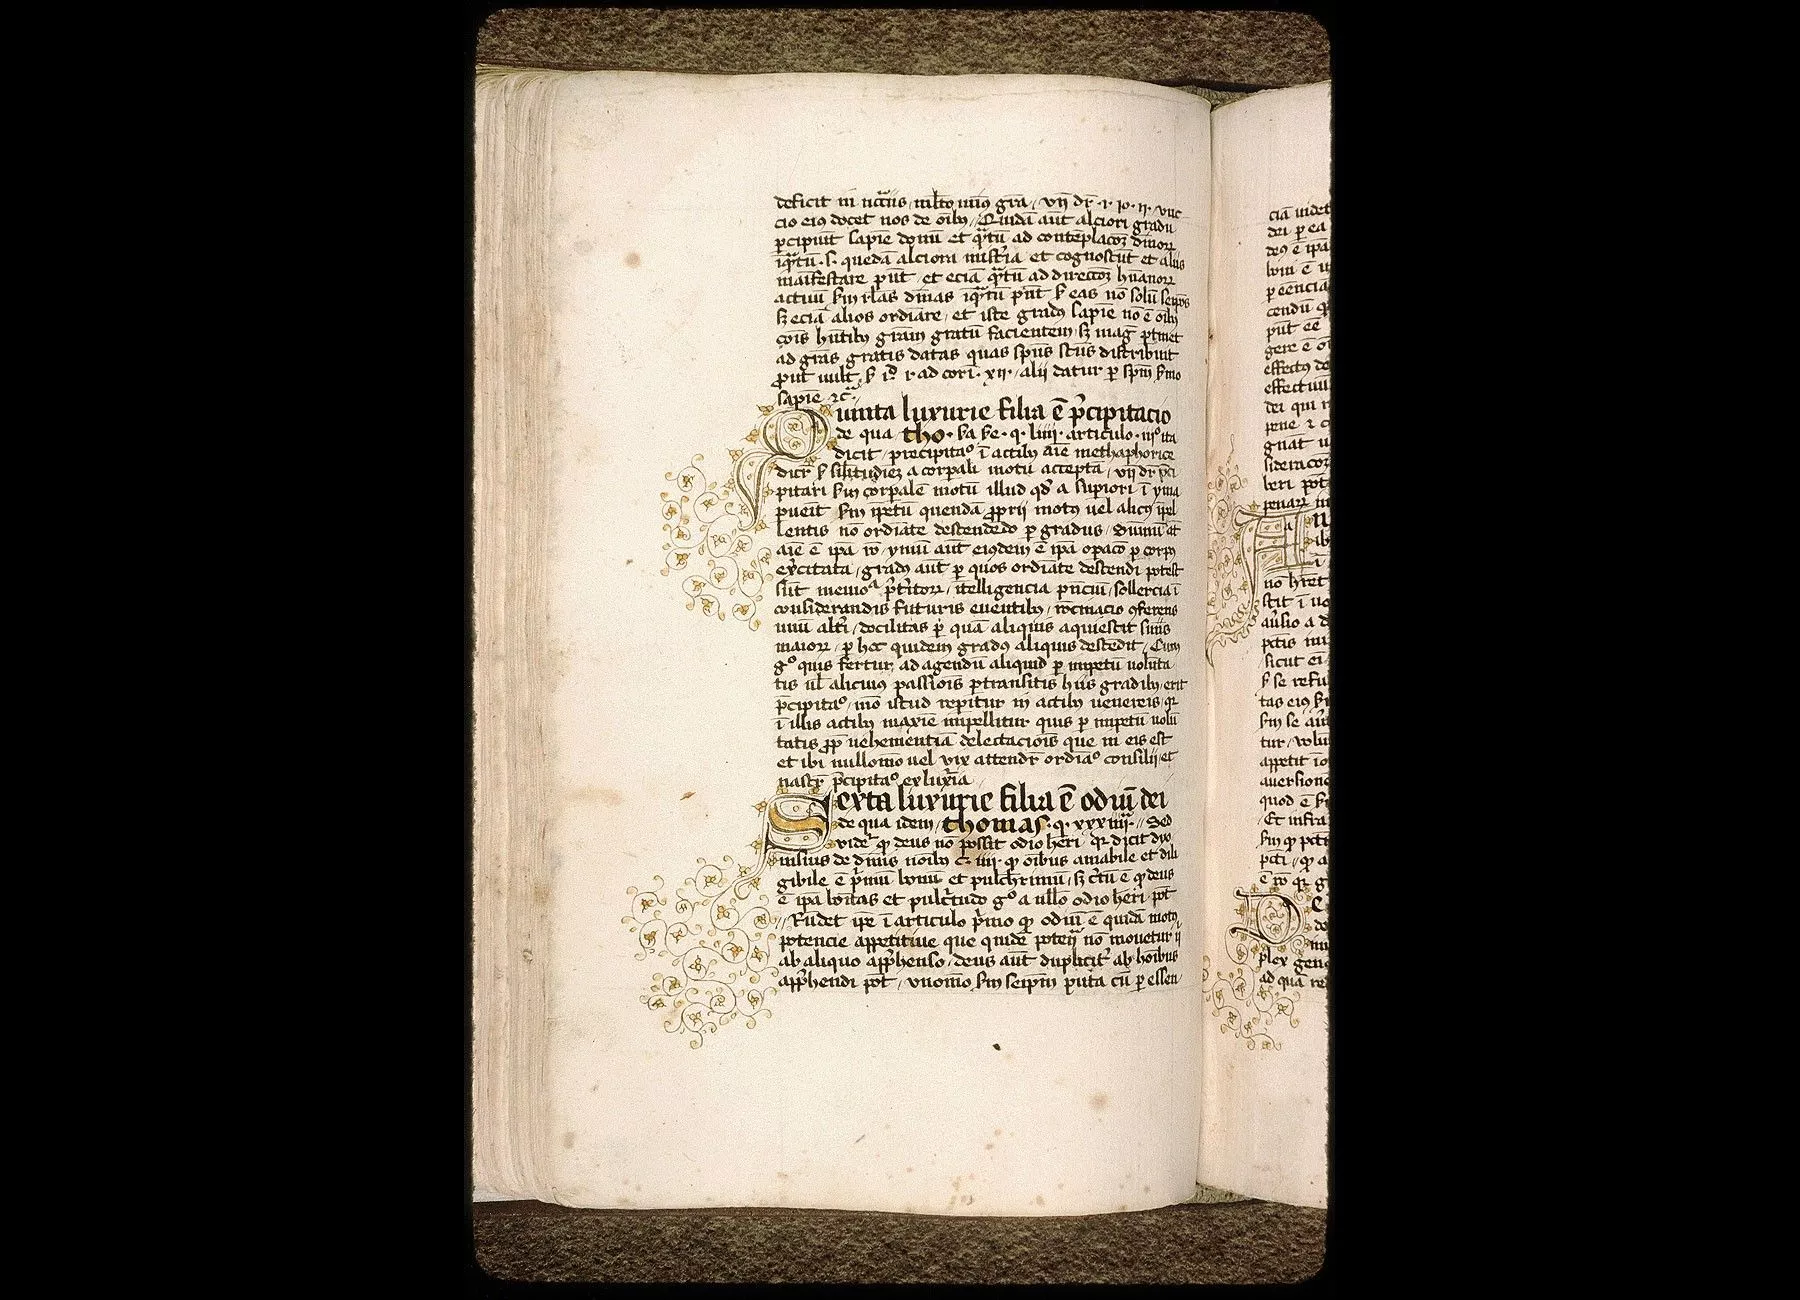 deficit in nccīīs, mlto min⁹ gra, vn̄ dr̄ · 1 · io · ii · vnc
cio ei⁹ docet nos de oīb⁹, Quidā aūt alciori gradu
ꝑcipiūt sapīe donū et q̄tū ad contēplacoꝫ dīnoꝝ
īq̄tū · s · quedā alciora mist̄ia et cognoscūt et aliis
maīfestare pn̄t, et eciā q̄tū ad direccoꝫ hūanoꝝ
actuū scd̄m rl̄as dīnas īq̄tū pn̄t scd̄m eas nō solū seip̄os
sꝫ eciā alios ordīare, et iste grad⁹ sapīe nō ē oīb⁹
cōis hn̄tib⁹ grām gratū facientem, sꝫ maḡ ꝑtinet
ad grās gratis datas quas sp̄us sc̄tus distribuit
ꝓut uult, scd̄m id̄ 1 ad cori · xii · alii datur ꝑ sp̄m ẜmo
sapīe ⁊c̄
Quinta luxurie filia ē p̄cipitacio
de qua tho · sa se · q · liii · articulo · iii° ita
dicit, precipitaᵒ ī actib⁹ aīe methaphorice
dicr̄ scd̄m silitudīeꝫ a corpali motu acceptā, vn̄ dr̄ p̄ci
pitari scd̄m corpalē motū illud qd̄ a supiori ī yma
puēit scd̄m īpetū quendā ꝓprii mot⁹ uel alic⁹ īpel
lentis nō ordīate descendēdo ꝑ gradus, Sūmū aūt
aīe ē ip̄a rō, ymū aūt eiusdem ē ip̄a opacō ꝑ corp⁹
ex̄citata, grad⁹ aūt ꝑ quos ordīate descendi potest
sūt memoᵃ p̄t̄itoꝝ, ītelligencia p̄nciū, sollercia ī
considerandis futuris euentib⁹, rōcinacio ꝯferens
unū alt̄i, docilitas ꝑ quā aliquis aquiescit sn̄iis
maioꝝ, ꝑ hos quidem grad⁹ aliquis descēdit, Cum
gᵒ quis fertur, ad agendū aliquid ꝑ impetū uolūta
tis ul̄ alicui⁹ passiōis ꝑtransitis hiis gradib⁹, erit
p̄cipitaᵒ, īmo istud rep̄itur in actib⁹ uenereis, qꝛ
ī illis actib⁹ maxīe impellitur quis ꝑ impetū uolū
tatis ꝓp̄ uehementiā delectaciōis que in eis est
et ibi nullomō uel vix attendr̄ ordīaᵒ consilii, et
nascr̄ p̄cipitaᵒ ex luxīa
Sexta luxurie filia ē odiū dei
de qua idem, thomas · q · xxxiiii · // Sed
videᵗ̄ ꝙ deus nō possit odio heri qꝛ dicit dyo
nisius de dīnis noīb⁹ c · iiii · ꝙ oībus amabile et dili
gibile ē p̄mū bonū et pulchrimū, sꝫ c̄tū ē ꝙ deus
ē ip̄a bōitas et pulc̄tudo gᵒ a ullo odio heri pōt
// Rn̄det ip̄e ī articulo p̄mo ꝙ odiū ē quidā mot⁹
potencie appetitiue que quidē potēīa nō mouetur n
ab aliquo app̄henso, deus aūt duplicit̄ ab hoībus
app̄hendi pōt, vnomō scd̄m seip̄m puta cū ꝑ essen
ciā uidet
dei ꝑ ea
de⁹ ē ip̄a
boni ē
ꝑ eencia
cendū
pn̄t eē
gere ē
effect⁹ de
effectuū
dei qui
pene ⁊ c
gnat
sideracoꝫ
beri pot
penaꝝ
A
nō hr̄et
stit ī uo
aūsio a d
pctīs
sicut ei
scd̄m se refu
tas ei⁹ scd̄m
scd̄m se aūt
tur, volū
appetit
auersione
quod ē scd̄m
Et infra
scd̄m ꝙ pctī
pctī, ꝙ a
ē rō qꝛ g
D
plex gen
ad quā re